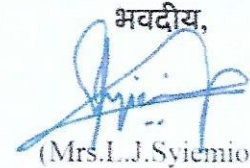 भवदीय,
(Mrs.L.J.Syiemie